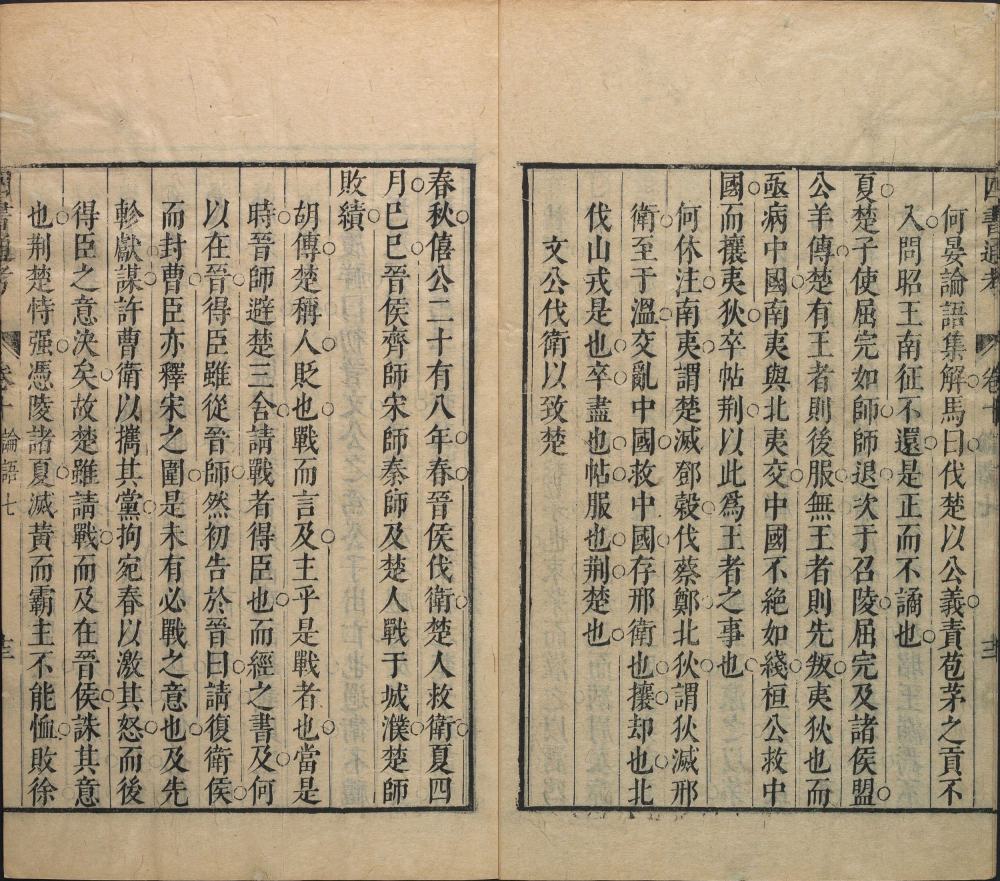 四書通考 卷十
何晏論語集解馬曰伐楚以公義責苞茅之貢不
入問昭王南征不還是正而不譎也
夏楚子使屈完如師師退次于召陵屈完及諸侯盟
公羊傳楚有王者則後服無王者則先叛夷狄也而
亟病中國南夷與北夷交中國不絶如綫桓公救中
國而攘夷狄卒帖荆以此爲王者之事也
何休注南夷謂楚滅鄧榖伐蔡鄭北狄謂狄滅邢
衛至于溫交亂中國救中國存邢衛也攘却也北
伐山戎是也卒盡也帖服也荆楚也
文公伐衛以致楚
春秋僖公二十有八年春晉侯伐衛楚人救衛夏四
月巳巳晉侯齊師宋師秦師及楚人戰于城濮楚師
敗績
胡傳楚稱人貶也戰而言及主乎是戰者也當是
時晉師避楚三舍請戰者得臣也而經之書及何
以在晉得臣雖從晉師然初告於晉曰請復衛侯
而封曹臣亦釋宋之圍是未有必戰之意也及先
軫獻謀許曹衛以攜其黨拘宛春以激其怒而後
得臣之意決矣故楚雖請戰而及在晉侯誅其意
也荆楚恃强憑陵諸夏滅黃而霸主不能恤敗徐
四書通考 卷十 論語七 十三